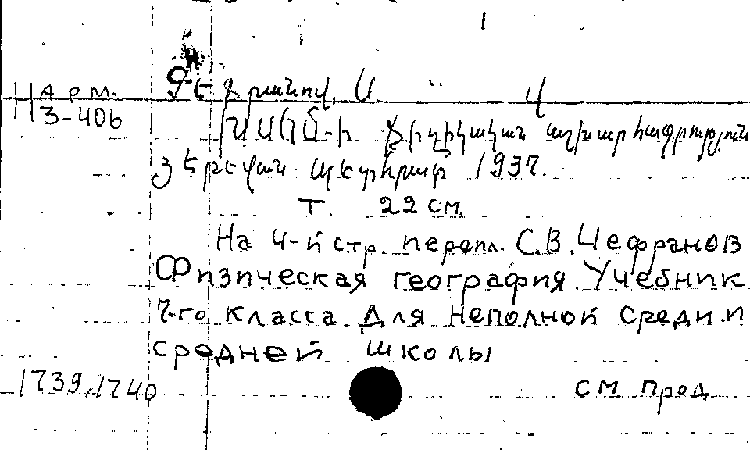 Арм.
3-406
Չեֆրանով, Ս. Վ.
ԽՍՀՄ-ի ֆիզիկական աշխարհագրություն
Յերևան Պետհրատ 1937.
Т. 22 см.
На 4-й стр. перепл. С.В. Чефранов
Физическая география. Учебник
7-го класса для неполной средн. и
средней школы
1739, 1740 см прод